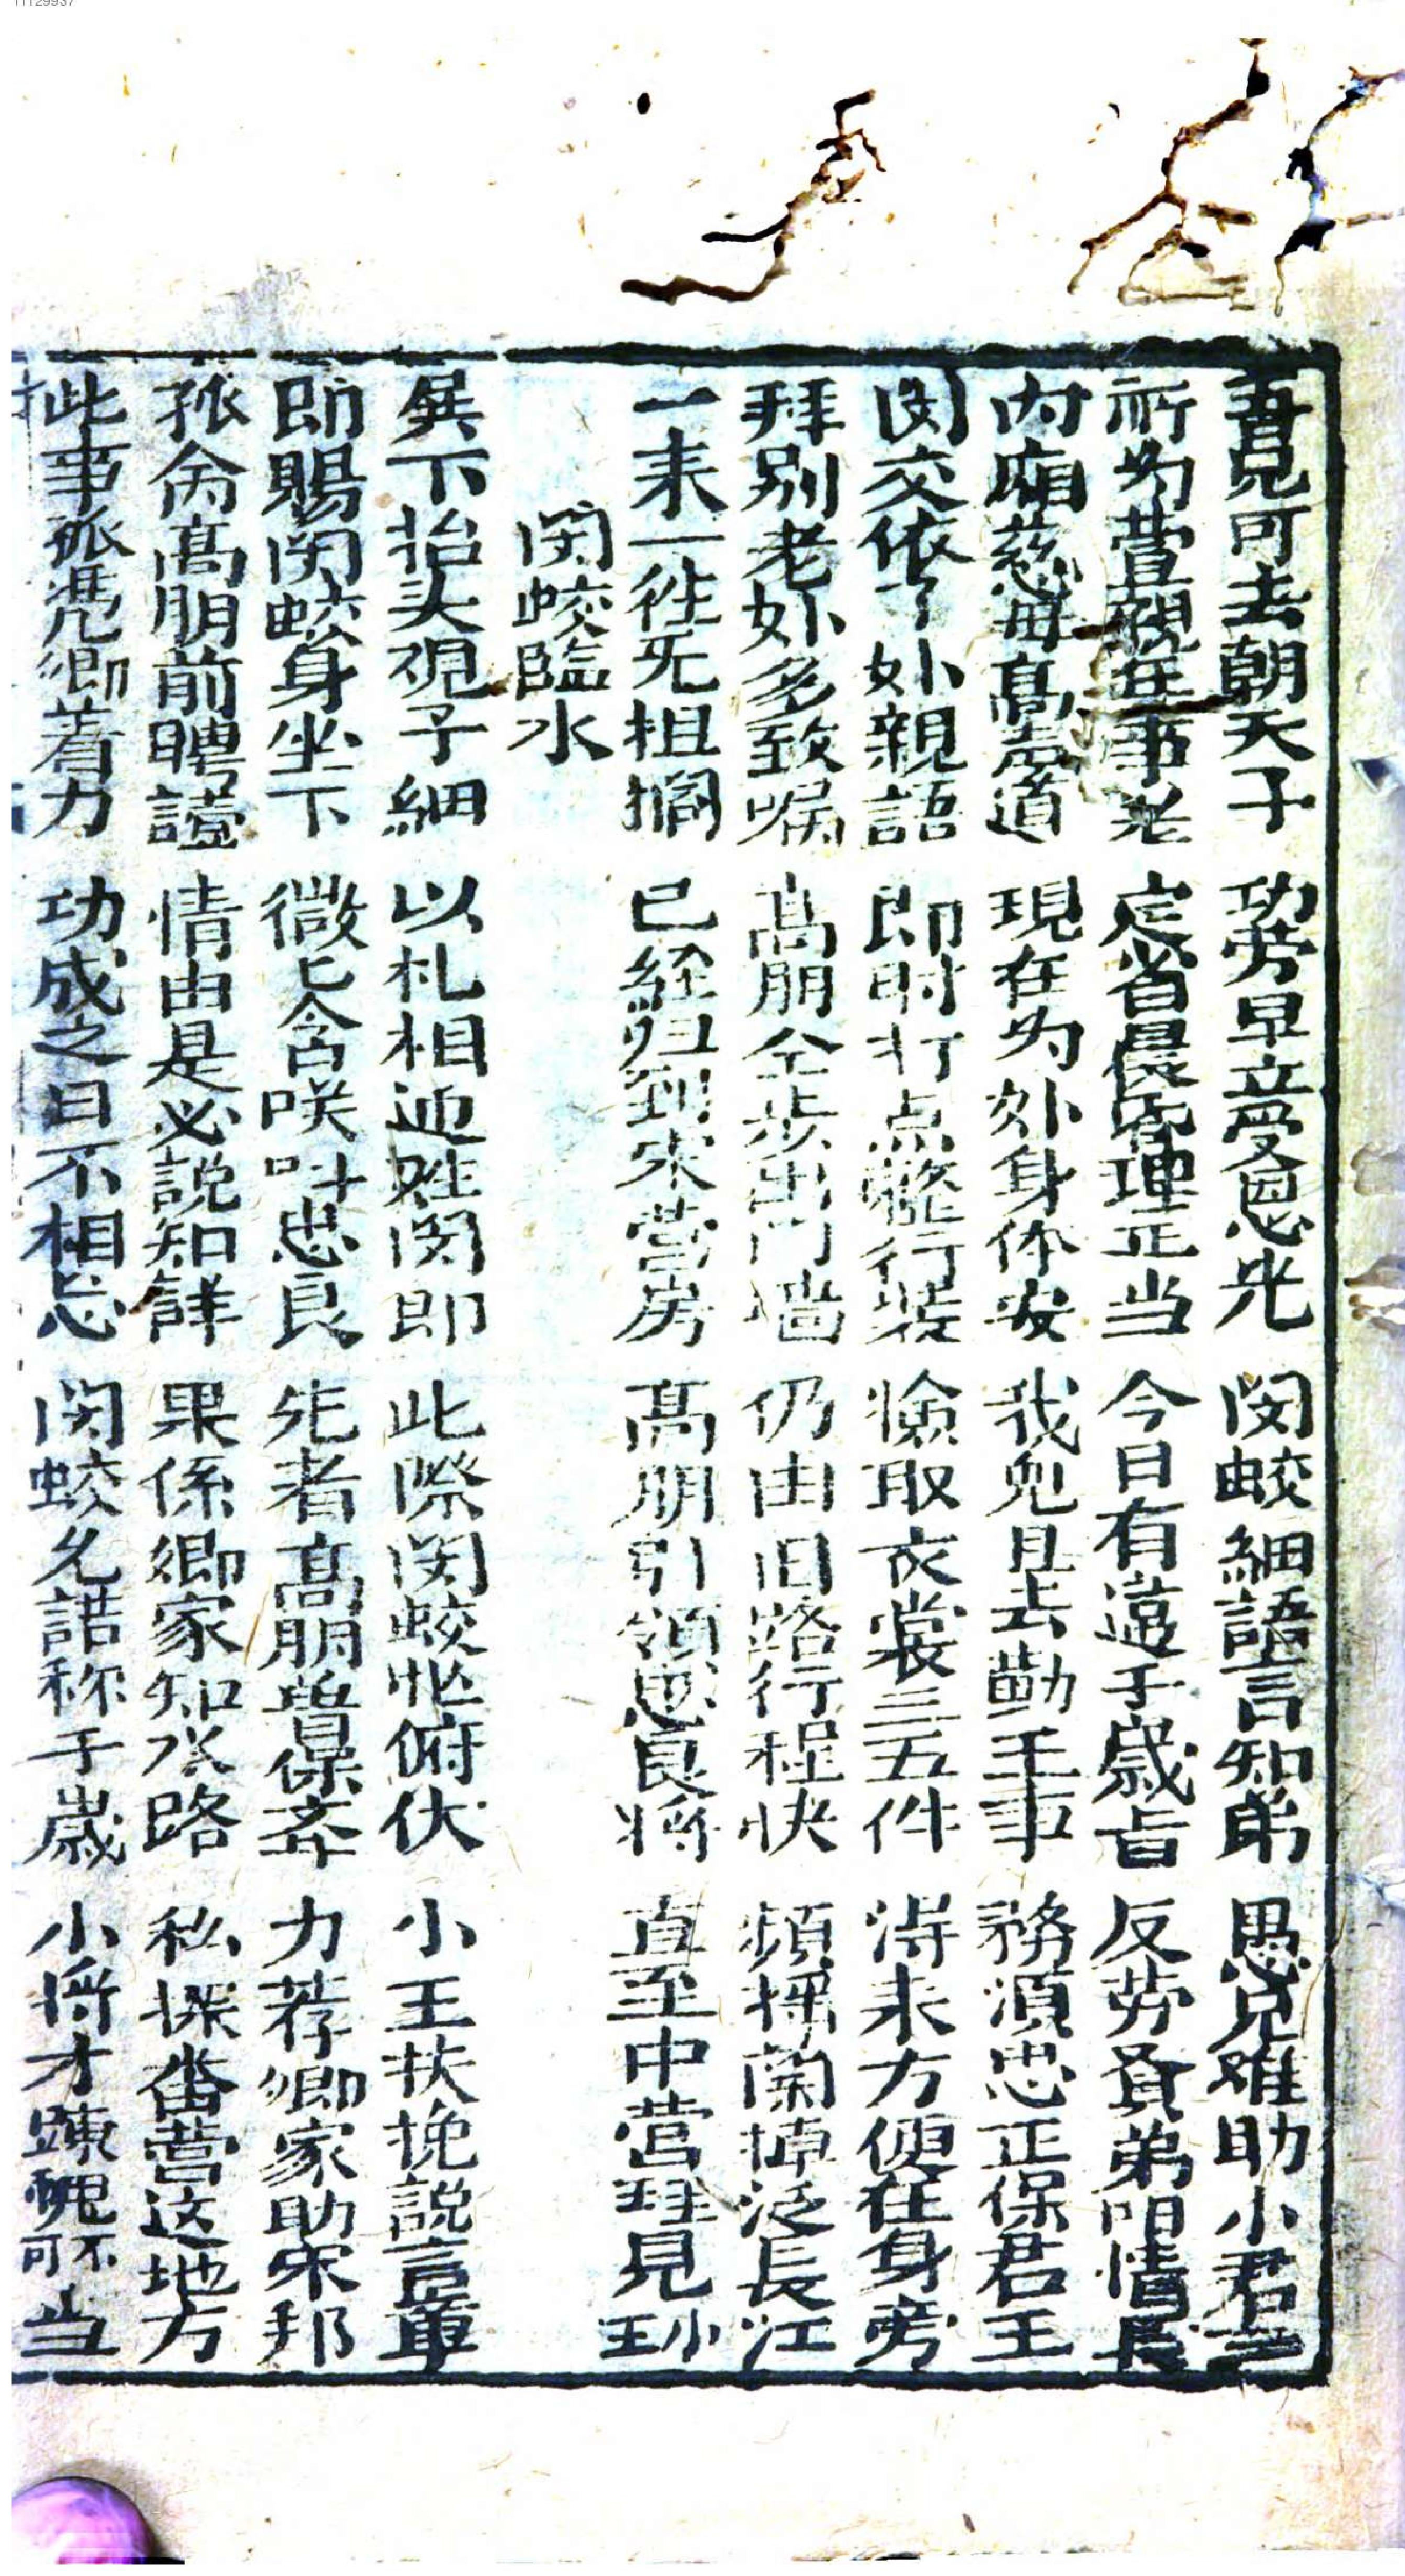 吾兄可去朝天子 功劳早立受恩光 闵蛟細語言知弟 愚兄难助小君
祈为萱親年事老 定省晨昏理正当 今日有違千歳旨 反劳賢弟阻情長
内廂慈母高声道 現在为外身体安 我児且去勤王事 務須忠正保君王
闵交依了外親語 即时打点整行装 撿取衣裳三五件 得来方便在身旁
拜别老外多致嘱 高朋仝步出门墙 仍由旧路行程快 頻摇蘭掉泛長江
一来一徃无担擱 已経归到宋营房 高朋引領忠良将 直至中营珪見小王
闵蛟臨水
巽下抬头观子細 以礼相迎姓闵郎 此際闵蛟忙俯伏 小王扶挽説言章
即賜闵蛟身坐下 微匕含咲叫忠良 先者高朋曽保斉 力荐卿家助宋邦
孤命高朋前聘請 情由是必説知詳 果係卿家知水路 私探畨营这地方
此事孤凴卿着力 功成之日不相忘 闵蛟允諾称千歳 小将才踈愧不可当